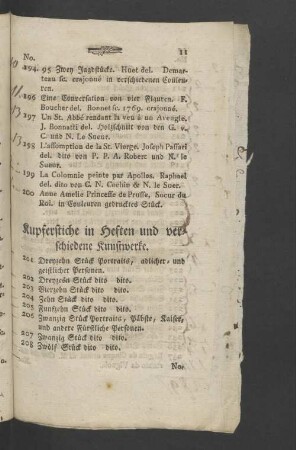 No. 11
194. 95 Zwey Jagdstücke. Huet del. Demar-
teau sc. crajonné in verschiedenen Couleu-
ren.
196 Eine Conversation von vier Figuren. F.
Boucher del. Bonnet sc. 1769. crajonné.
197 Un St. Abbé rendant la veu à un Aveugle.
J. Bonnatti del. Holzschnitt von den G. v.
C. und N. Le Soeur.
198 L'assomption de la St. Vierge. Joseph Passari
del. dito von P. P. A. Robert und N. le
Sueur.
199 La Colomnie peinte par Apollos. Raphael
del. dito von C. N. Cochin & N. le Soer.
200 Anne Amelie Princesse de Prusse, Soeur du
Roi. in Couleuren gedrucktes Stück.
Kupferstiche in Heften und ver-
schiedene Kunstwerke.
201 Dreyzehn Stück Portraits, adlicher, und
geistlicher Personen.
202 Dreyzehn Stück dito dito.
203 Vierzehn Stück dito dito.
204 Zehn Stück dito dito.
205 Funfzehn Stück dito dito.
206 Zwanzig Stück Portraits, Päbste, Kaiser,
und andere Fürstliche Personen.
207 Zwanzig Stück dito dito.
208 Zwölf Stück dito dito.
No.